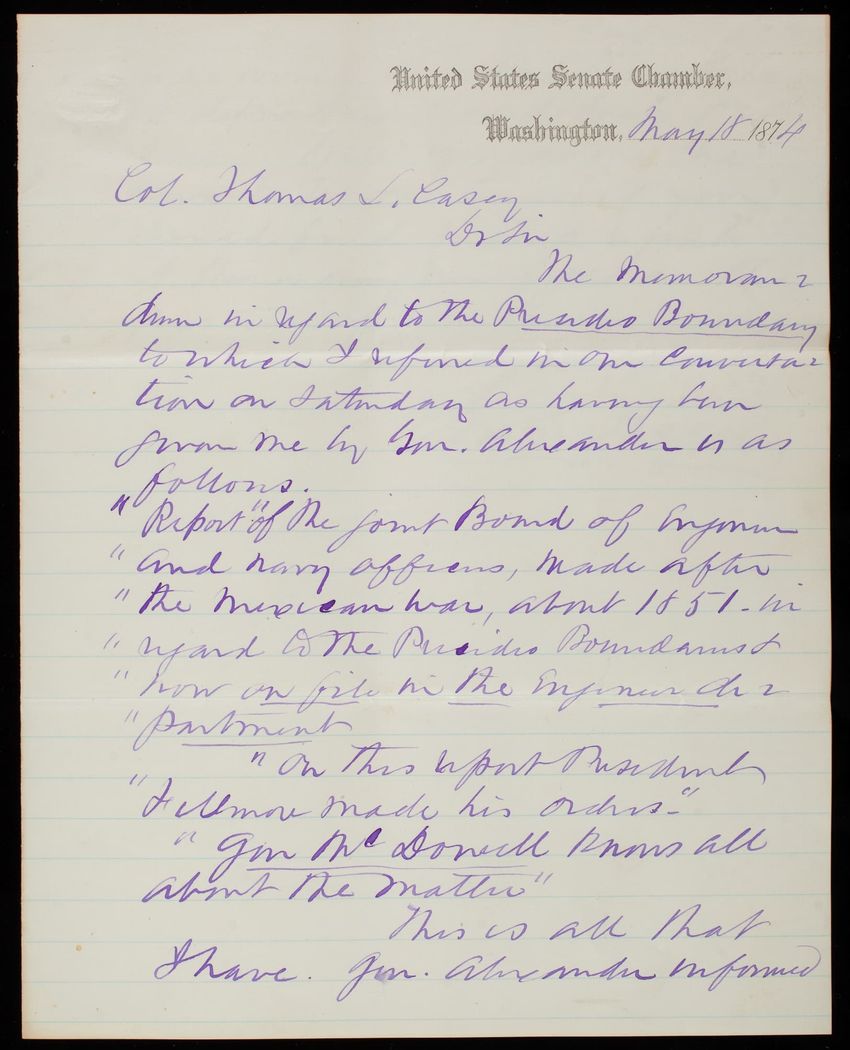 United States Senate Chamber,
Washington, May 18 1874
Col. Thomas L. Casey
Dr Sir
The Memoran=
dum in regard to the Presidio Boundary
to which I referred in our Conversa=
tion on Saturday as having been
given me by Gen. Alexander is as
follows.
"Report "of the joint Board of Engineer
"and Navy officers, made after
"the Mexican War, about 1851- in
"regard to the Presidio Boundaries &
"now on file in the Engineer De=
"partment
"On this report President
"Fillmore made his orders-"
"Gen McDowell knows all
about the matter"
This is all that
I have. Gen. Alexander informed